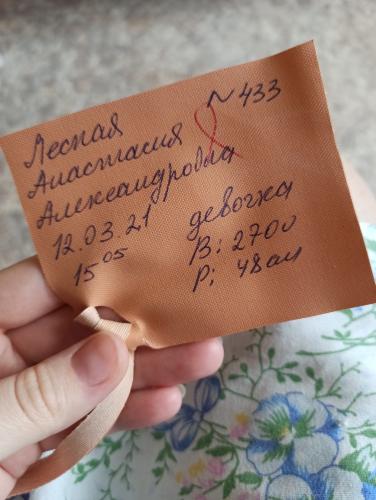 № 433
Лесная
Анастасия
Александровна
12.03.21
15 05
девочка
В: 2700
Р: 48см